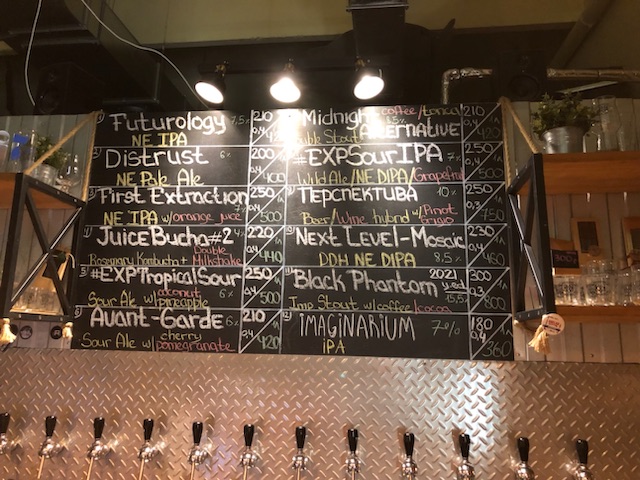 Futurology 7,5% 210
NE IPA 0,4
Distrust 6% 200
NE Pale Ale 0,4 400
First Extraction 250
NE IPA w/orange juice 500
JuiceBucha#2 220
Double
Rosemary Kombucha + Milkshake 440
#EXPTropicalSour 250
coconut
Sour Ale w/pineapple 6% 500
Avant-Garde 6% 210
cherry 0,4
Sour Ale w/pomegranate 420
Midnight coffee/tonca 210
Alternative 0,4
Double Stout 420
#EXPSourIPA 7% 250
Wild Ale/NE DIPA/Grapefruit 500
ПЕРСПЕКТИВА 10% 250
0,3
Beer/Wine hybrid w/Pinot Grigio 750
Next Level-Mosaic 230
DDH NE DIPA 8.5% 460
Black Phantom 2021 y.ed. 300
Imp Stout w/coffee/cocoa 15,5% 800
iMAGiNARiUM 7% 180
0,4
iPA 360
300